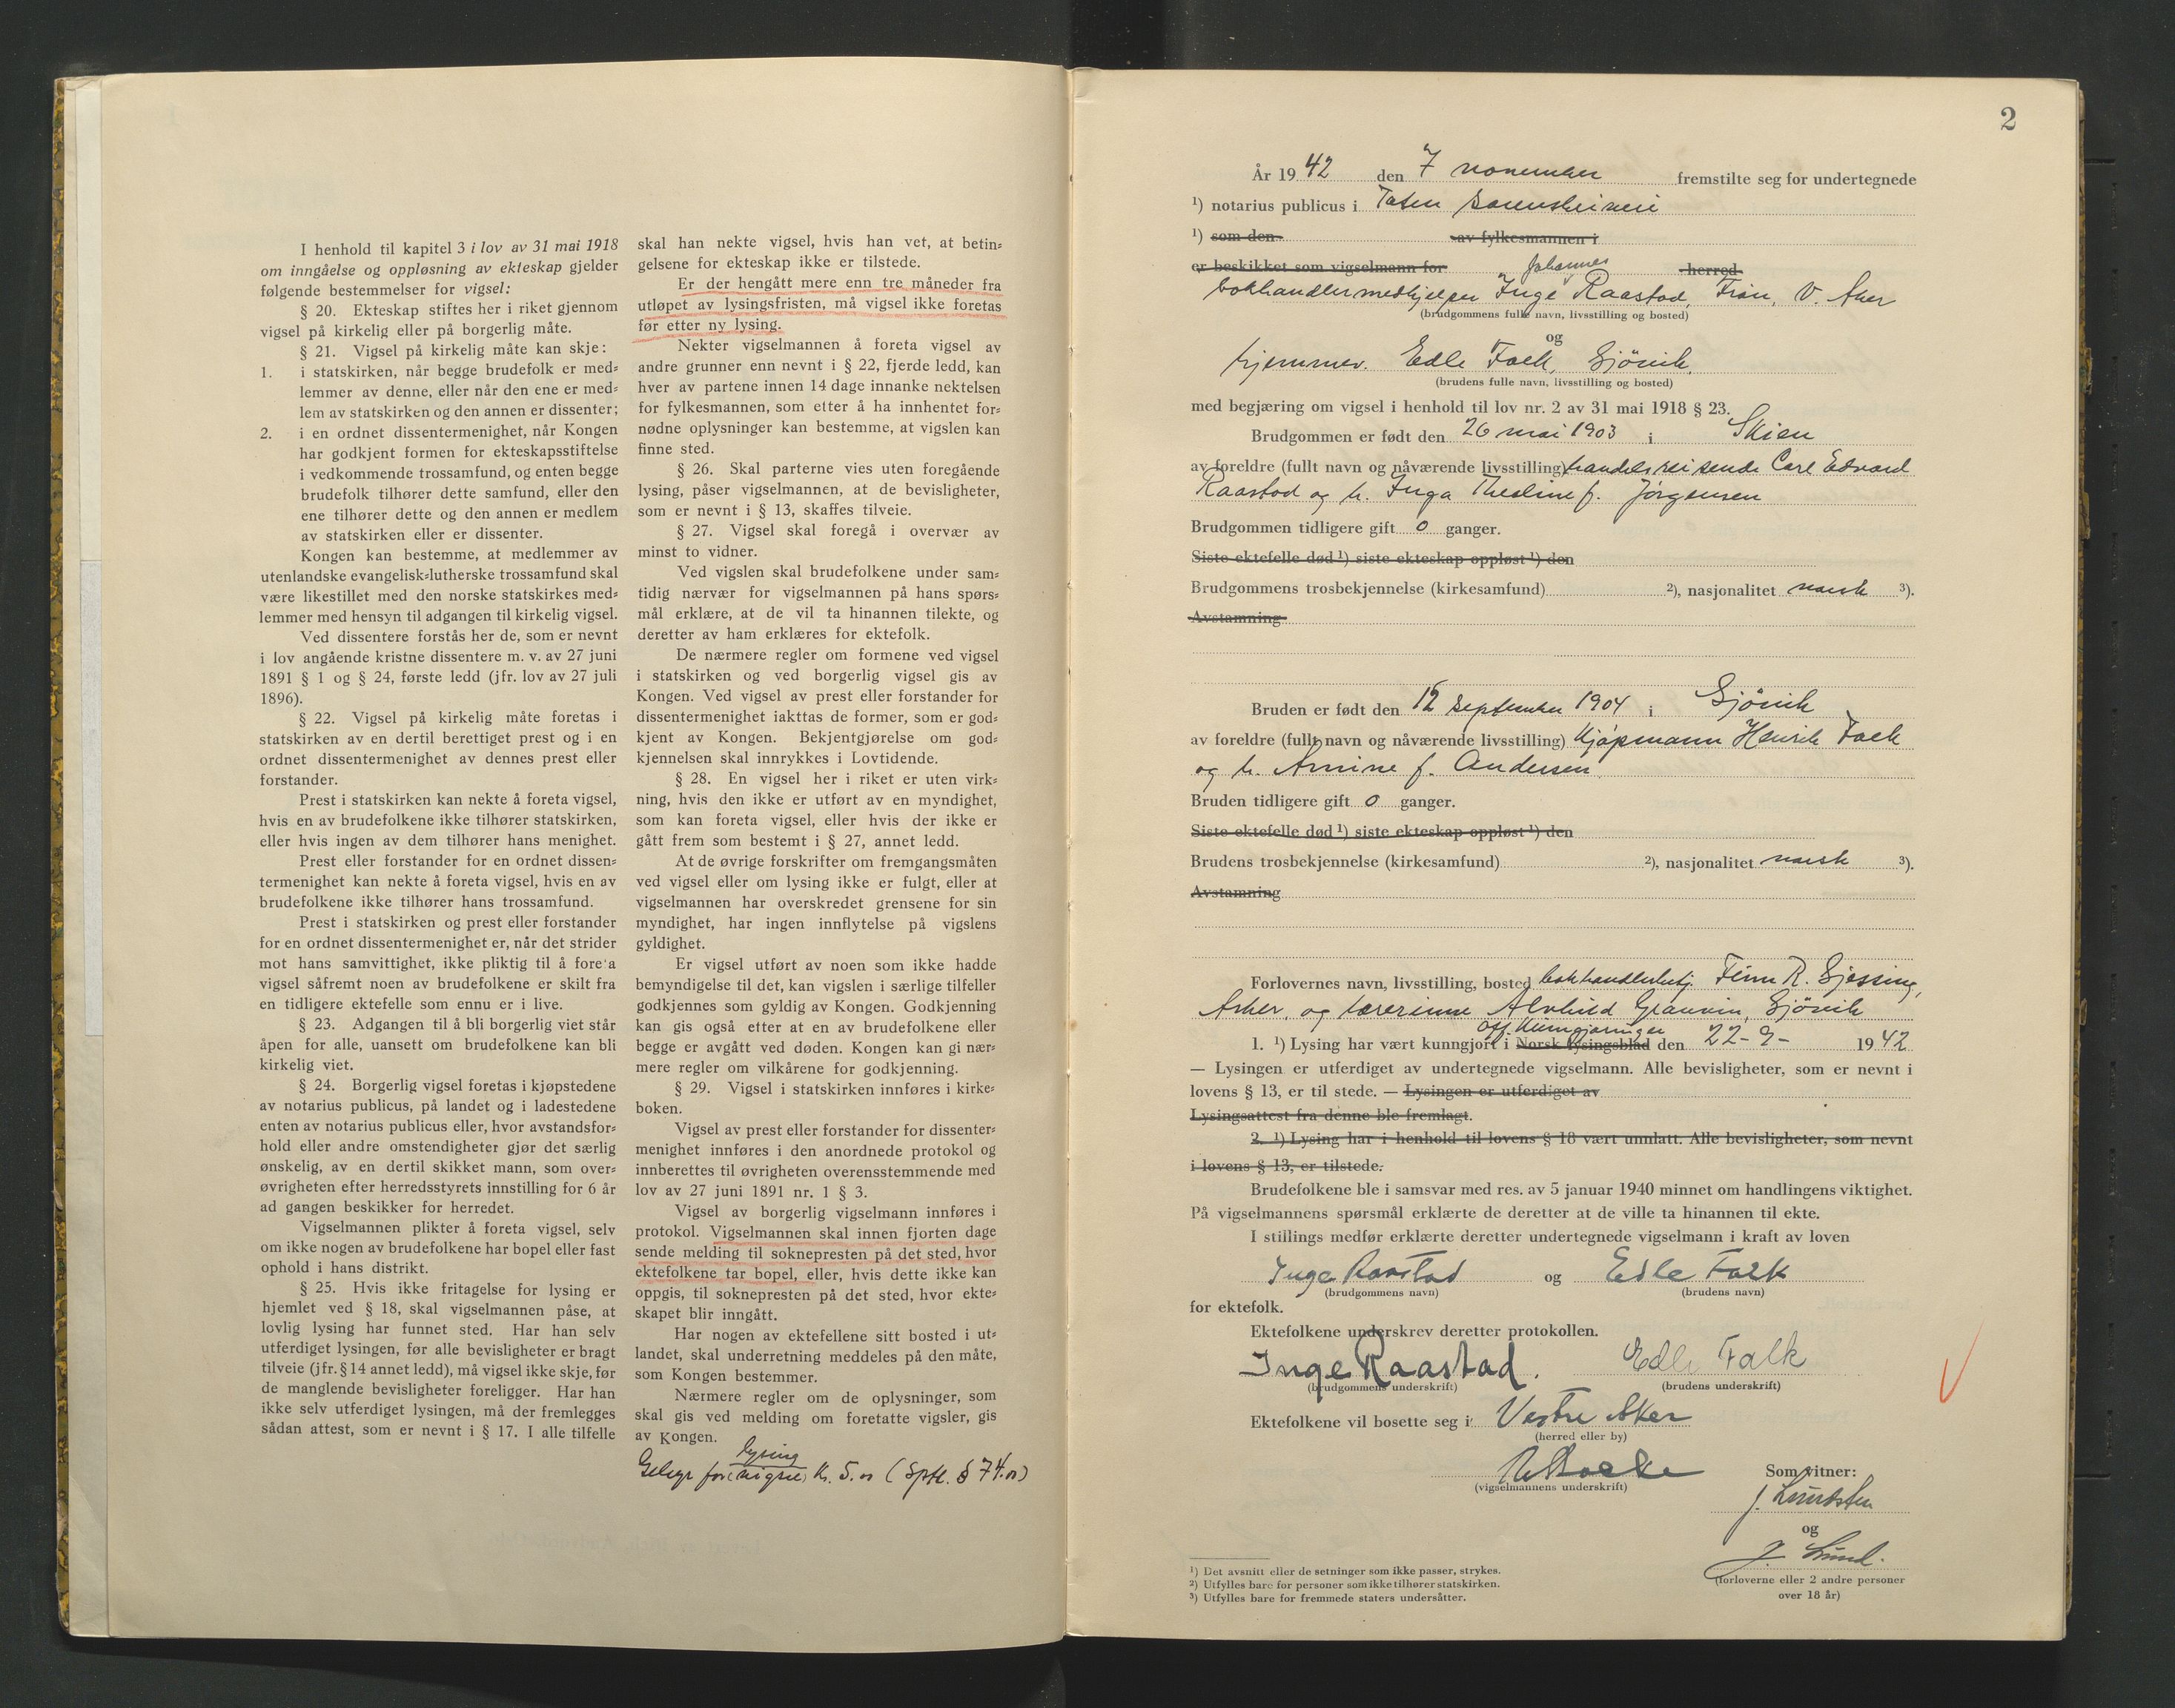 I henhold til kapitel 3 i lov av 31 mai 1918
om inngåelse og oppløsning av ekteskap gjelder
følgende bestemmelser for vigsel:
§ 20. Ekteskap stiftes her i riket gjennom
vigsel på kirkelig eller på borgerlig måte.
§ 21. Vigsel på kirkelig måte kan skje:
1. i statskirken, når begge brudefolk er med-
lemmer av denne, eller når den ene er med-
lem av statskirken og den annen er dissenter;
2. i en ordnet dissentermenighet, når Kongen
har godkjent formen for ekteskapsstiftelse
i vedkommende trossamfund, og enten begge
brudefolk tilhører dette samfund, eller den
ene tilhører dette og den annen er medlem
av statskirken eller er dissenter.
Kongen kan bestemme, at medlemmer av
utenlandske evangelisk-lutherske trossamfund skal
være likestillet med den norske statskirkes med-
lemmer med hensyn til adgangen til kirkelig vigsel.
Ved dissentere forstås her de, som er nevnt
i lov angående kristne dissentere m. v. av 27 juni
1891 § 1 og § 24, første ledd (jfr. lov av 27 juli
1896).
§ 22. Vigsel på kirkelig måte foretas i
statskirken av en dertil berettiget prest og i en
ordnet dissentermenighet av dennes prest eller
forstander.
Prest i statskirken kan nekte å foreta vigsel,
hvis en av brudefolkene ikke tilhører statskirken,
eller hvis ingen av dem tilhører hans menighet.
Prest eller forstander for en ordnet dissen-
termenighet kan nekte å foreta vigsel, hvis en av
brudefolkene ikke tilhører hans trossamfund.
Prest i statskirken og prest eller forstander
for en ordnet dissentermenighet er, når det strider
mot hans samvittighet, ikke pliktig til å foreta
vigsel såfremt noen av brudefolkene er skilt fra
en tidligere ektefelle som ennu er i live.
§ 23. Adgangen til å bli borgerlig viet står
åpen for alle, uansett om brudefolkene kan bli
kirkelig viet.
§ 24. Borgerlig vigsel foretas i kjøpstedene
av notarius publicus, på landet og i ladestedene
enten av notarius publicus eller, hvor avstandsfor-
hold eller andre omstendigheter gjør det særlig
ønskelig, av en dertil skikket mann, som over-
øvrigheten efter herredsstyrets innstilling for 6 år
ad gangen beskikker for herredet.
Vigselmannen plikter å foreta vigsel, selv
om ikke nogen av brudefolkene har bopel eller fast
ophold i hans distrikt.
§ 25. Hvis ikke fritagelse for lysing er
hjemlet ved § 18, skal vigselmannen påse, at
lovlig lysing har funnet sted. Har han selv
utferdiget lysingen, før alle bevisligheter er bragt
tilveie (jfr. § 14 annet ledd), må vigsel ikke skje, før
de manglende bevisligheter foreligger. Har han
ikke selv utferdiget lysingen, må der fremlegges
sådan attest, som er nevnt i § 17. I alle tilfelle
skal han nekte vigsel, hvis han vet, at betin-
gelsene for ekteskap ikke er tilstede.
Er der hengått mere enn tre måneder fra
utløpet av lysingsfristen, må vigsel ikke foretas
før etter ny lysing.
Nekter vigselmannen å foreta vigsel av
andre grunner enn nevnt i § 22, fjerde ledd, kan
hver av partene innen 14 dage innanke nektelsen
for fylkesmannen, som etter å ha innhentet for-
nødne oplysninger kan bestemme, at vigslen kan
finne sted.
§ 26. Skal parterne vies uten foregående
lysing, påser vigselmannen, at de bevisligheter,
som er nevnt i § 13, skaffes tilveie.
§ 27. Vigsel skal foregå i overvær av
minst to vidner.
Ved vigslen skal brudefolkene under sam-
tidig nærvær for vigselmannen på hans spørs-
mål erklære, at de vil ta hinannen tilekte, og
deretter av ham erklæres for ektefolk.
De nærmere regler om formene ved vigsel
i statskirken og ved borgerlig vigsel gis av
Kongen. Ved vigsel av prest eller forstander for
dissentermenighet iakttas de former, som er god-
kjent av Kongen. Bekjentgjørelse om god-
kjennelsen skal innrykkes i Lovtidende.
§ 28. En vigsel her i riket er uten virk-
ning, hvis den ikke er utført av en myndighet,
som kan foreta vigsel, eller hvis der ikke er
gått frem som bestemt i § 27, annet ledd.
At de øvrige forskrifter om fremgangsmåten
ved vigsel eller om lysing ikke er fulgt, eller at
vigselmannen har overskredet grensene for sin
myndighet, har ingen innflytelse på vigslens
gyldighet.
Er vigsel utført av noen som ikke hadde
bemyndigelse til det, kan vigslen i særlige tilfeller
godkjennes som gyldig av Kongen. Godkjenning
kan gis også etter at en av brudefolkene eller
begge er avgått ved døden. Kongen kan gi nær-
mere regler om vilkårene for godkjenning.
§ 29. Vigsel i statskirken innføres i kirke-
boken.
Vigsel av prest eller forstander for dissenter-
menighet innføres i den anordnede protokol og
innberettes til øvrigheten overensstemmende med
lov av 27 juni 1891 nr. 1 § 3.
Vigsel av borgerlig vigselmann innføres i
protokol. Vigselmannen skal innen fjorten dage
sende melding til soknepresten på det sted, hvor
ektefolkene tar bopel, eller, hvis dette ikke kan
oppgis, til soknepresten på det sted, hvor ekte-
skapet blir inngått.
Har nogen av ektefellene sitt bosted i ut-
landet, skal underretning meddeles på den måte,
som Kongen bestemmer.
Nærmere regler om de oplysninger, som
skal gis ved melding om foretatte vigsler, gis
av Kongen.
lysing
Gebyr for vigsel kr. 5.00 (Sptl. § 74.)
2
År 1942 den 7 november fremstilte seg for undertegnede
1) notarius publicus i Toten sorenskriveri
1) som den av fylkesmannen i
er beskikket som vigselmann for herred
Johannes
bokhandlermedhjelper Inge Raastad, Frøn, V. Aker
(brudgommens fulle navn, livsstilling og bosted)
og
hjemmev. Edle Falk, Gjövik.
(brudens fulle navn, livsstilling og bosted)
med begjæring om vigsel i henhold til lov nr. 2 av 31 mai 1918 § 23.
Brudgommen er født den 26 mai 1903 i Skien
av foreldre (fullt navn og nåværende livsstilling) handelsreisende Carl Edvard
Raastad og h. Inga Thesline f. Jørgensen
Brudgommen tidligere gift 0 ganger.
Siste ektefelle død 1) siste ekteskap oppløst 1) den
Brudgommens trosbekjennelse (kirkesamfund) 2), nasjonalitet norsk 3).
Avstamning
Bruden er født den 12 september 1904 i Gjövik
av foreldre (fullt navn og nåværende livsstilling) Kjøpmann Henrik Falk
og h. Amine f. Andersen
Bruden tidligere gift 0 ganger.
Siste ektefelle død 1) siste ekteskap oppløst 1) den
Brudens trosbekjennelse (kirkesamfund) 2), nasjonalitet norsk 3).
Avstamning
Forlovernes navn, livsstilling, bosted bokhandlerbetj. Finn R. Gjessing,
Asker, og lærerinne Alvhild Granvin, Gjövik
off. kunngjøringer
1. 1) Lysing har vært kunngjort i Norsk lysingsblad den 22-9- 1942
— Lysingen er utferdiget av undertegnede vigselmann. Alle bevisligheter, som er nevnt i
lovens § 13, er til stede. — Lysingen er utferdiget av
Lysingsattest fra denne ble fremlagt.
2. 1) Lysing har i henhold til lovens § 18 vært unnlatt. Alle bevisligheter, som nevnt
i lovens § 13, er tilstede.
Brudefolkene ble i samsvar med res. av 5 januar 1940 minnet om handlingens viktighet.
På vigselmannens spørsmål erklærte de deretter at de ville ta hinannen til ekte.
I stillings medfør erklærte deretter undertegnede vigselmann i kraft av loven
Inge Raastad og Edle Falk
(brudgommens navn) (brudens navn)
for ektefolk.
Ektefolkene underskrev deretter protokollen.
Inge Raastad. Edle Falk
(brudgommens underskrift) (brudens underskrift)
Ektefolkene vil bosette seg i Vestre Aker
(herred eller by)
(vigselmannens underskrift)
Som vitner:
J. Lundsten
og
J. Lund.
(forloverne eller 2 andre personer
over 18 år)
1) Det avsnitt eller de setninger som ikke passer, strykes.
2) Utfylles bare for personer som ikke tilhører statskirken.
3) Utfylles bare for fremmede staters undersåtter.